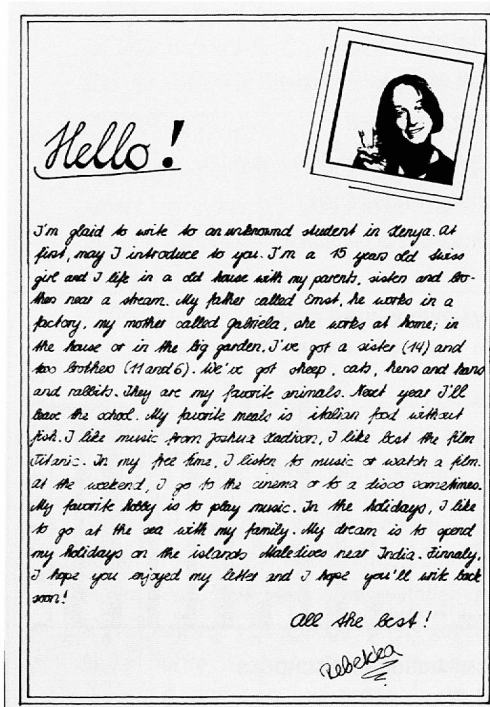 Hello!
I'm glaid to write to an unknownd student in Kenya. At
first, may I introduce to you. I'm a 15 years old swiss
girl and I life in a old house with my parents, sister and bro-
ther near a stream. My father called Ernst, he works in a
factory, my mother called Gabriela, she works at home; in
the house or in the big garden. I've got a sister (14) and
two brothers (11 and 6). We've got sheep, cats, hens and
and rabbits. They are my favorite animals. Next year I'll
leave the school. My favorite meals is italian food without
fish. I like music from Joshua Kadison, I like best the film
Titanic. In my free time, I listen to music or watch a film.
At the weekend, I go to the cinema or to a disco sometimes.
My favorite hobby is to play music. In the holidays, I like
to go at the sea with my family. My dream is to spend
my holidays on the islands Maledives near India. Finnaly,
I hope you enjoyed my letter and I hope you'll write back
soon!
All the best!
Rebekka